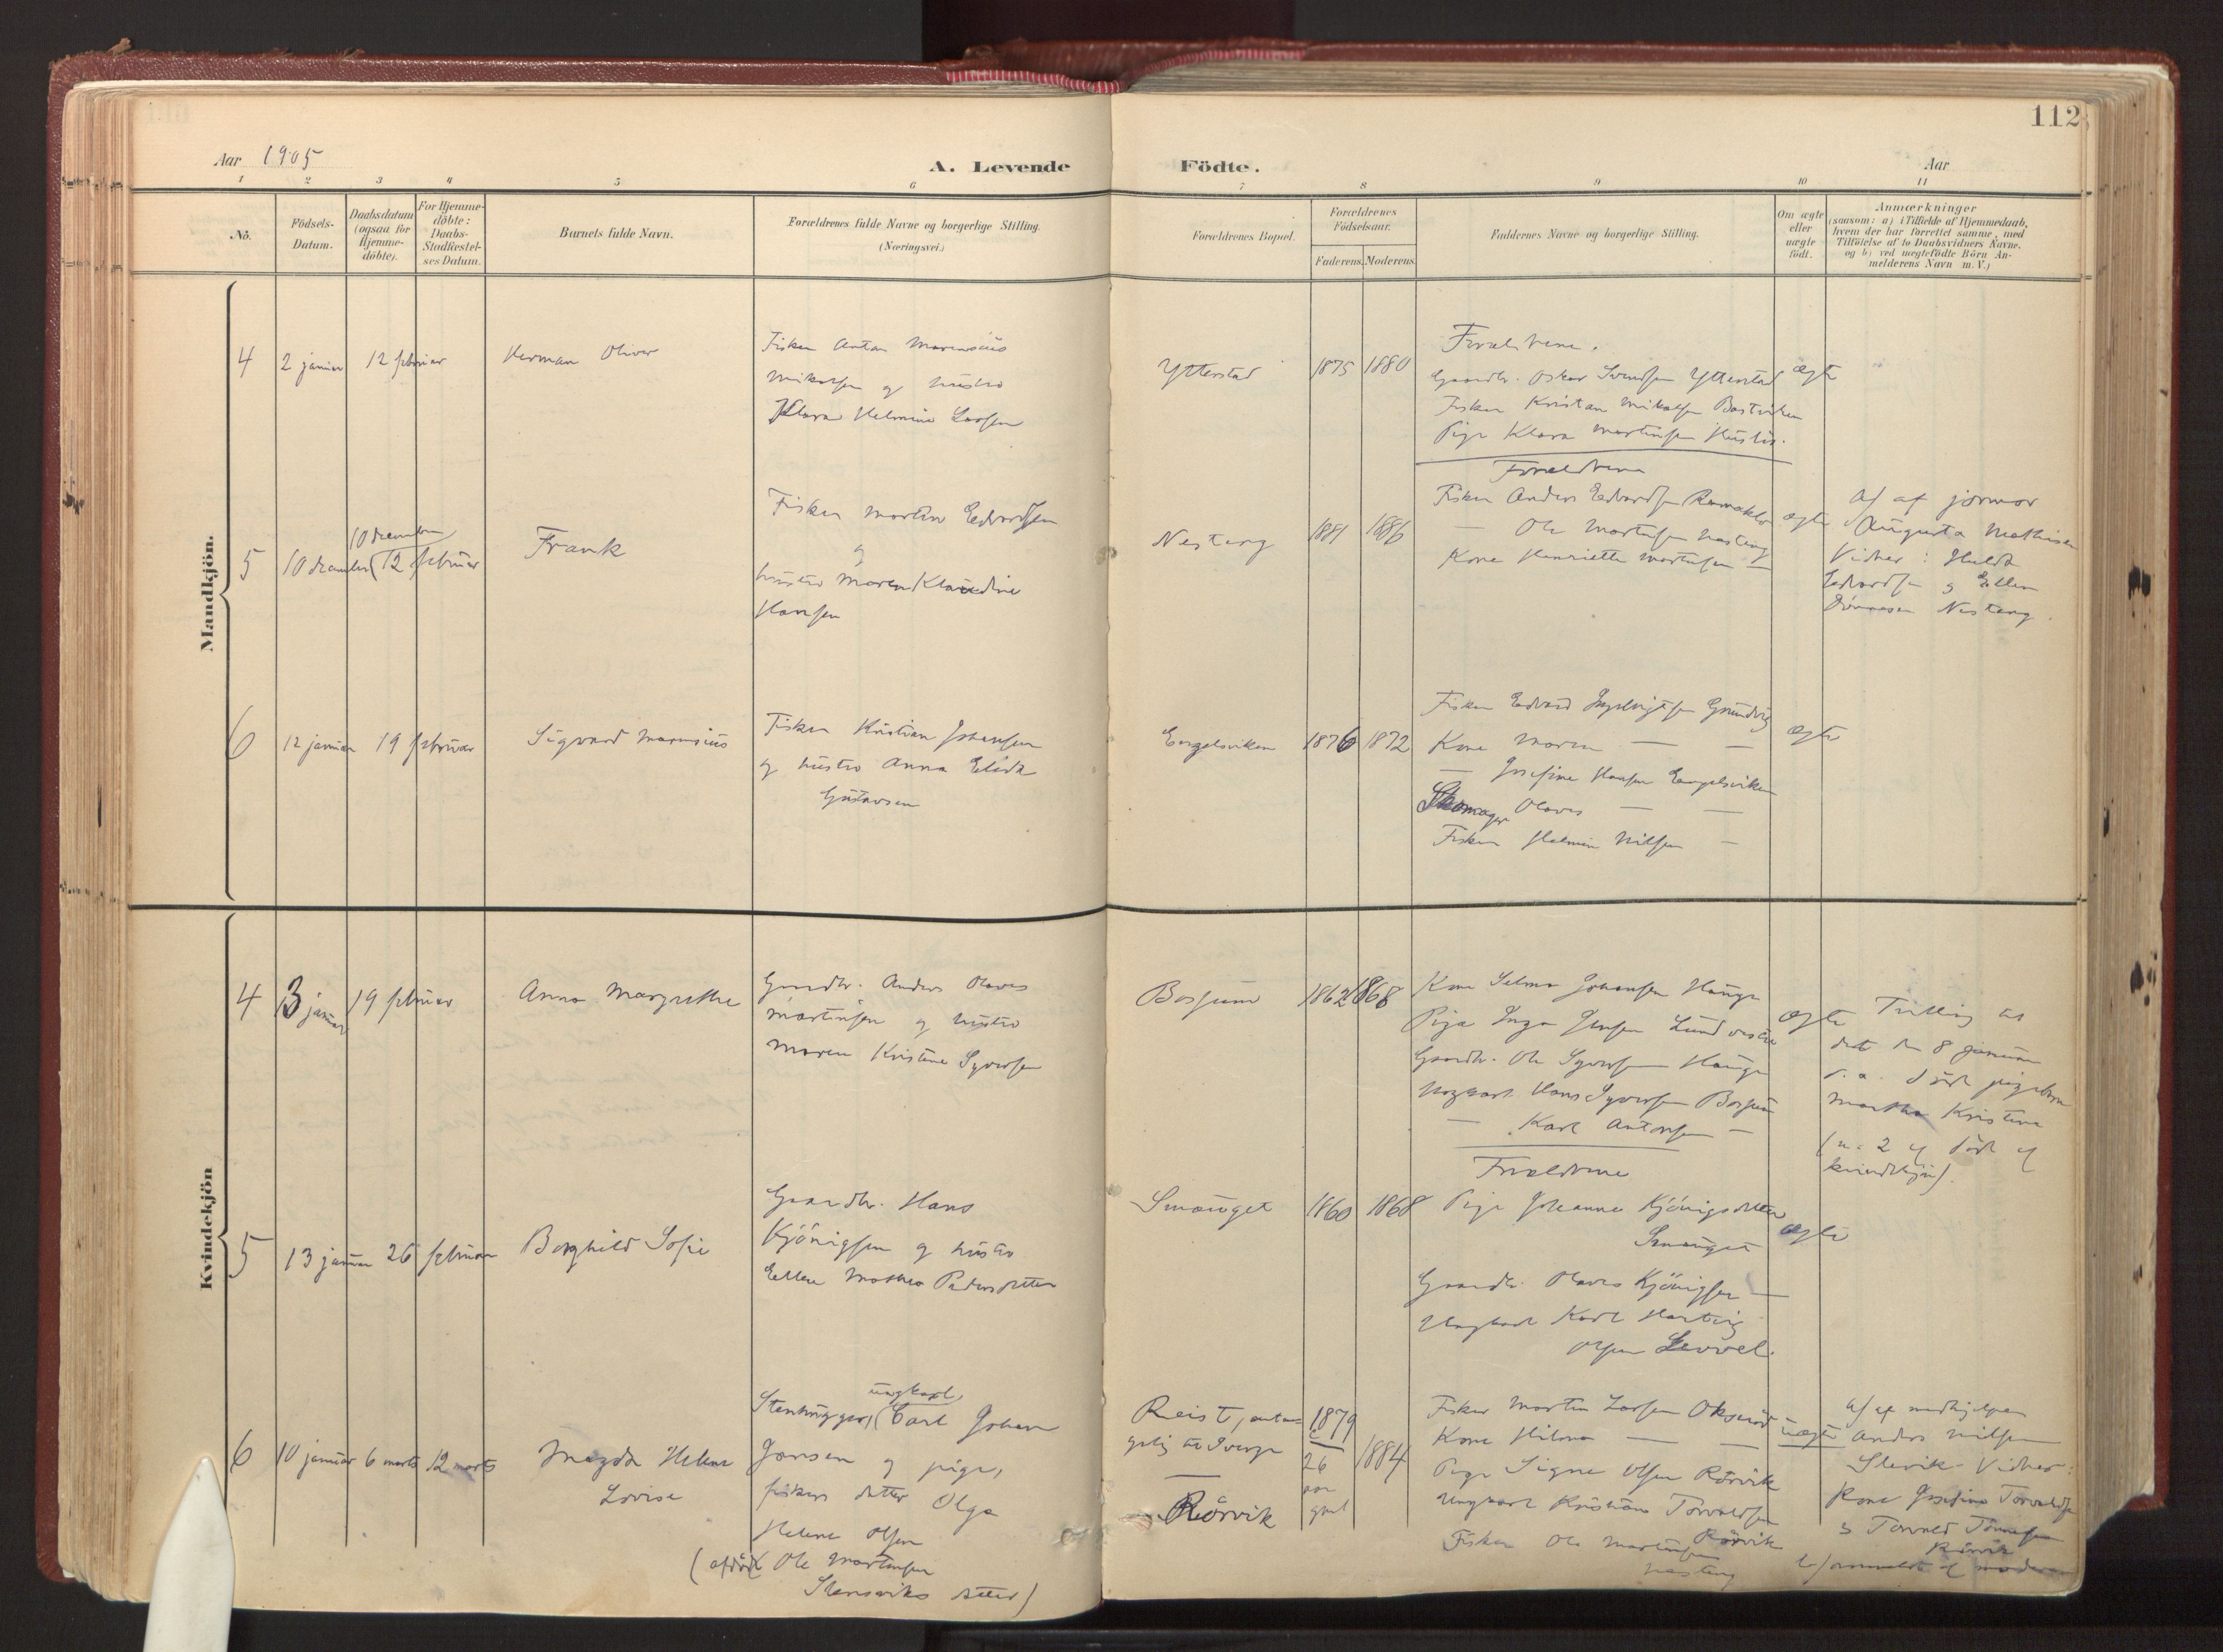 112
Aar 1905
A. Levende Födte.
Aar
1 2 3 4 5 6 7 8 9 10 11
No.
Födsels-
Datum.
Daabsdatum
(ogsaa for
Hjemme-
döbte).
For Hjemme-
döbte:
Daabs-
Stadfæstel-
ses Datum.
Barnets fulde Navn.
Forældrenes fulde Navne og borgerlige Stilling.
(Næringsvei.)
Forældrenes Bopæl.
Forældrenes
Födselsaar.
Faderens. Moderens.
Faddernes Navne og borgerlige Stilling.
Om ægte
eller
uægte
födt.
Anmærkninger
(saasom: a) i Tilfælde af Hjemmedaab,
hvem der har forrettet samme, med
Tilföielse af to Daabsvidners Navne.
og b) ved uægtefödte Börn An-
melderens Navn m. V.)
Mandkjön.
4 2 januar 12 februar
Herman Oliver
Fisker Anton Marensius
Mikalsen og hustru
Klara Helmine Larsen
Ytterstad
1875 1880
Forældrene.
Gaardbr. Oskar Svendsen Ytterstad
Fisker Kristian Mikalsen Bastviken
Pige Klara Martinsen
ægte
5 10 december
10 december (12 februar
Frank
Fisker Martin Edvardsen
og
hustru Maren Klaudine
Hansen
Nestang
1881 1886
Forældrene
Fisker Anders Edvardsen
— Ole Martinsen Nestang
Kone Henriette Martinsen —
ægte
a) af jormor
Augusta Mathisen
Vidner: Hulda
Edvardsen og Ellen
Nestang.
6 12 januar 19 februar
Sigvard Marensius
Fisker Kristian Johansen
og hustru Anna Elida
Gustavsen
Engelsviken
1876 1872
Fisker Edvard Grundvig
Kone Maren — —
— Josefine Hansen Engelsviken
Skomager Olaves — —
Fisker Helmin Nilsen —
ægte
Kvindekjön
4 3 januar 19 februar
Anna Margrethe
Gaardbr. Anders Olaves
Martinsen og hustru
Maren Kristine Syversen
Borgund
1862 1868
Kone Selma Johansen Hauge
Pige Inga Jensen Lund vestre
Gaardbr. Ole Syversen Hauge
Ungkarl Hans Syversen
— Karl Antonsen —
ægte
Tvilling til
det den 8 januar
d. a. døde pigebarn
Martha Kristine
(no. 2 af døde af
kvindekjøn).
5 13 januar 26 februar
Borghild Sofie
Gaardbr. Hans
Kjönigsen og hustru
Ellen Mathea Pedersdatter
Smauget
1860 1868
Forældrene
Pige Johanna Kjönigsdatter
Smauget
Gaardbr. Olaves Kjönigsen —
Ungkarl Karl Hartvig
Olsen Levvel.
ægte
6 10 januar 6 marts 12 marts
Magda Helene
Lovise
ungkarl,
Stenhugger, (Carl Johan
Jansen og pige,
fiskers datter Olga
Helene Olsen
(afdöd Ole Martinsen
datter)
Reist, anta=
gelig til Sverge
—
Rörvik
1879
26
aar
gml
1884
Fisker Martin Larsen
Kone Hilma — —
Pige Signe Olsen Rörvik
Ungkarl Kristian Torvaldsen
Rörvik
Fisker Ole Martinsen
Nestang
uægte
a) af medhjelper
Anders Nilsen
Slevik. Vidner:
Kone Josefine Torvaldsen
og Torvald Tönnesen
Rörvik
b) anmeldt af moderen